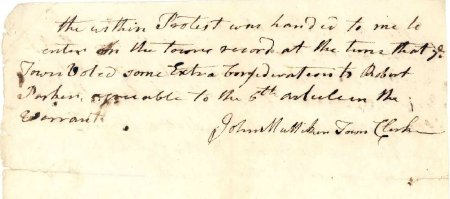 the within Protest was handed to me to
enter on the town record at the time that ye
Town Voted some Extra Consideration to Robert
Parker agreeable to the 6th article in the
Warrant
John Mulliken Town Clerk